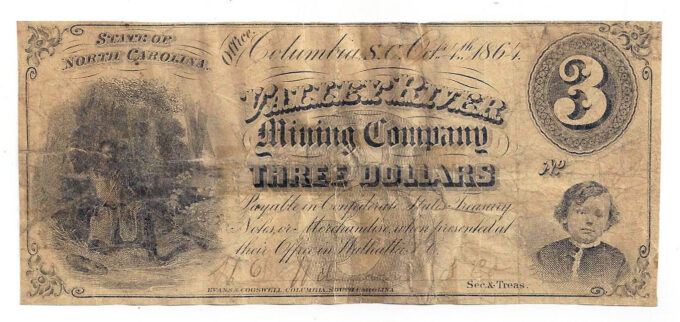 STATE OF
NORTH CAROLINA.
Office, Columbia, S.C. Oct. 4th 1864.
3
VALLEY RIVER
Mining Company
THREE DOLLARS
No
Payable in Confederate States Treasury
Notes, or Merchandise, when presented at
their Office in Walhalla S.C.
Sec. & Treas.
EVANS & COGSWELL, COLUMBIA, SOUTH CAROLINA.